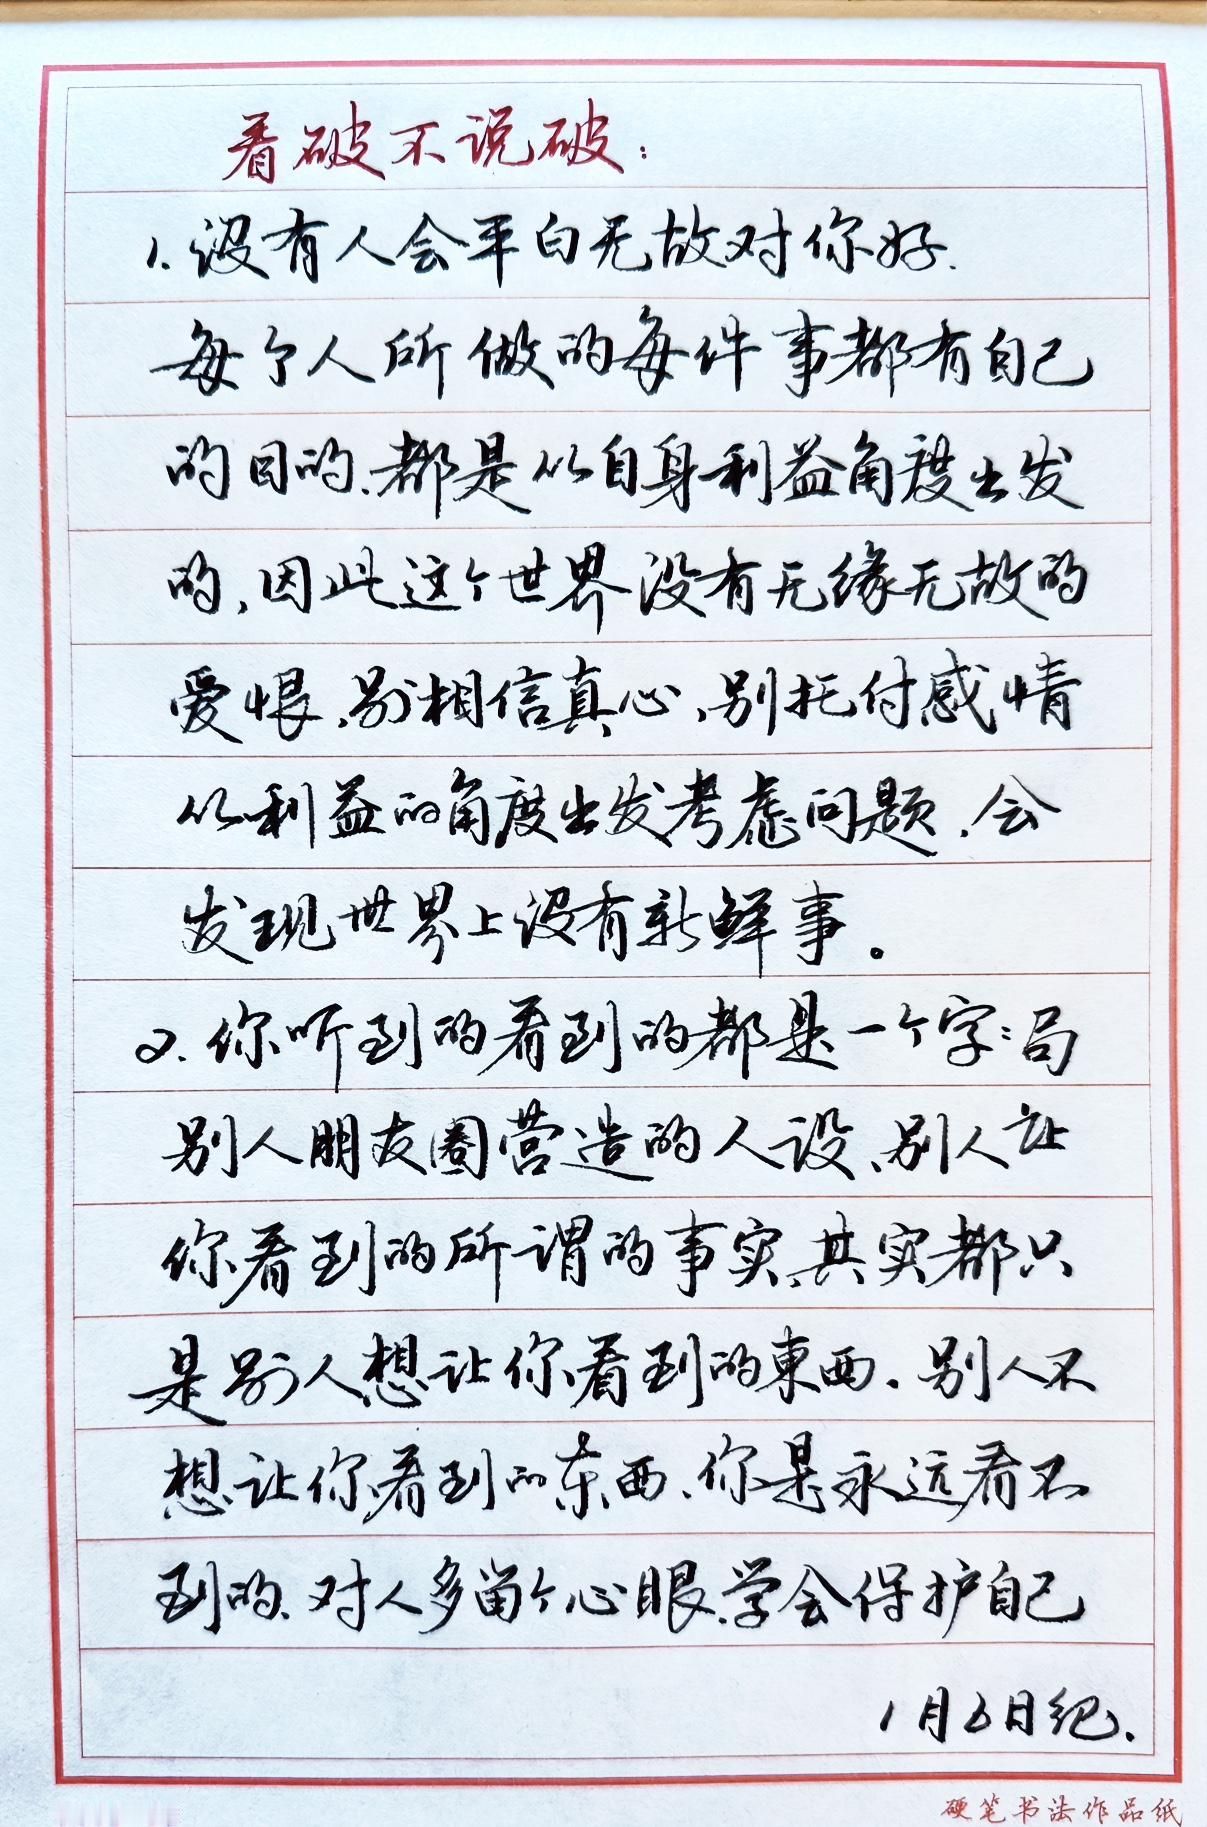 看破不说破：
1.没有人会平白无故对你好.
每个人所做的每件事都有自己
的目的、都是以自身利益角度出发
的，因此这个世界没有无缘无故的
爱恨、别相信真心、别托付感情
以利益的角度出发考虑问题、会
发现世界上没有新鲜事。
2.你听到的看到的都是一个字:局
别人朋友圈营造的人设、别人让
你看到的所谓的事实、其实都只
是别人想让你看到的東西.别人不
想让你看到的东西、你是永远看不
到的、对人多留个心眼.学会保护自己
1月6日纪.
硬笔书法作品纸